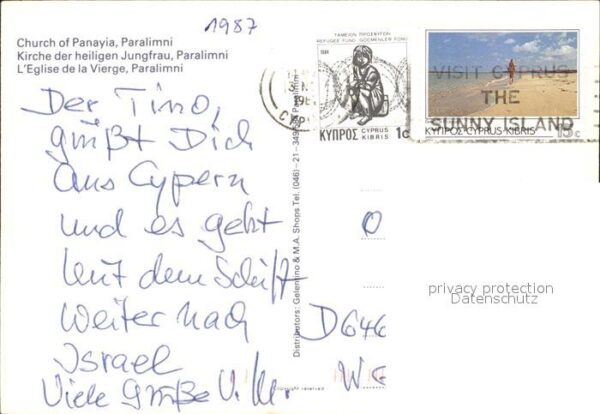 1987
Church of Panayia, Paralimni
Kirche der heiligen Jungfrau, Paralimni
L'Eglise de la Vierge, Paralimni
ΤΑΜΕΙΟΝ ΠΡΟΣΦΥΓΩΝ
REFUGEE FUND GÖÇMENLER FONU
1984
ΚΥΠΡΟΣ CYPRUS KIBRIS 1c
VISIT CYPRUS
THE
SUNNY ISLAND
ΚΥΠΡΟΣ CYPRUS KIBRIS 15c
Der Tino,
grüßt Dich
aus Cypern
und es geht
mit dem Schiff
weiter nach
Israel
Viele Grüße
Distributors: Gelemino & M.A. Shops Tel. (046)-21-349/
Copyright reserved
O
D646
We
privacy protection
Datenschutz